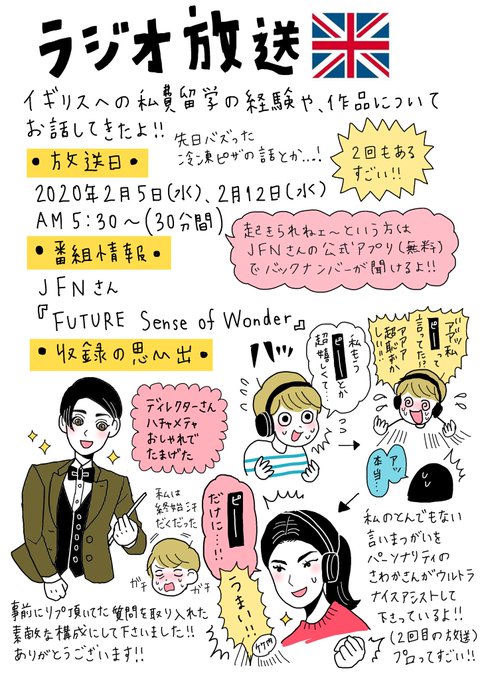 ラジオ放送
イギリスへの私費留学の経験や、作品について
お話してきたよ!!
先日バズった
冷凍ピザの話とか…!
2回もある
すごい!!
・放送日・
2020年2月5日(水)、2月12日(水)
AM5:30〜(30分間)
起きられねェ〜という方は
JFNさんの公式アプリ(無料)
でバックナンバーが聞けるよ!!
・番組情報・
JFNさん
『FUTURE Sense of Wonder』
・収録の思い出・
ディレクターさん
ハチャメチャ
おしゃれで
たまげた
私は
終始汗
だくだった
ガチ
ガチ
ハッ
私もう
ピーとか
超嬉しくて…
アアッ私
ピーって
言ってた!?
アアア
超恥ずか
しい!!!
アッ
本当…
ピー
だけに…!!
うまい!!
私のとんでもない
言いまつがいを
パーソナリティの
さわかさんがウルトラ
ナイスアシストして
下さっているよ!!
(2回目の放送)
プロってすごい!!
事前にリプ頂いてた質問を取り入れた
素敵な構成にして下さいました!!
ありがとうございます!!